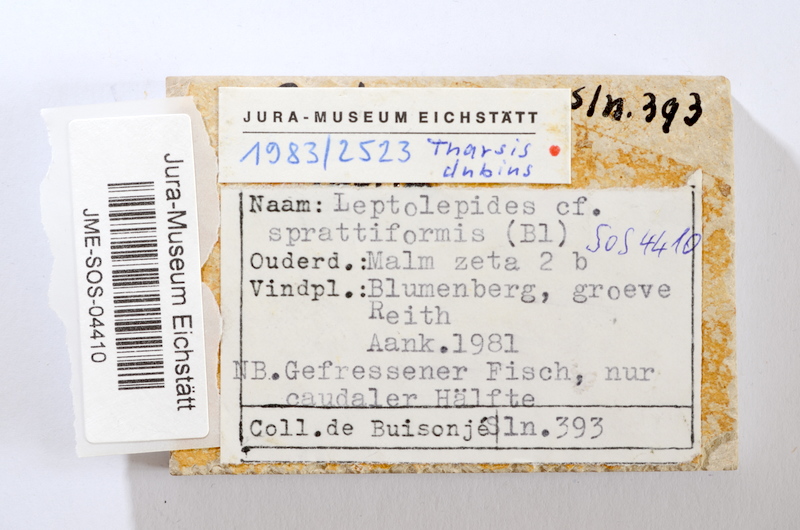 Sln.393
JURA-MUSEUM EICHSTÄTT
1983/2523 Tharsis
dubius
Naam: Leptolepides cf.
sprattiformis (Bl)
SOS 4410
Ouderd.: Malm zeta 2 b
Vindpl.: Blumenberg, groeve
Reith
Aank.1981
NB.Gefressener Fisch, nur
caudaler Hälfte
Coll.de Buisonjé Sln.393
Jura-Museum Eichstätt
JME-SOS-04410